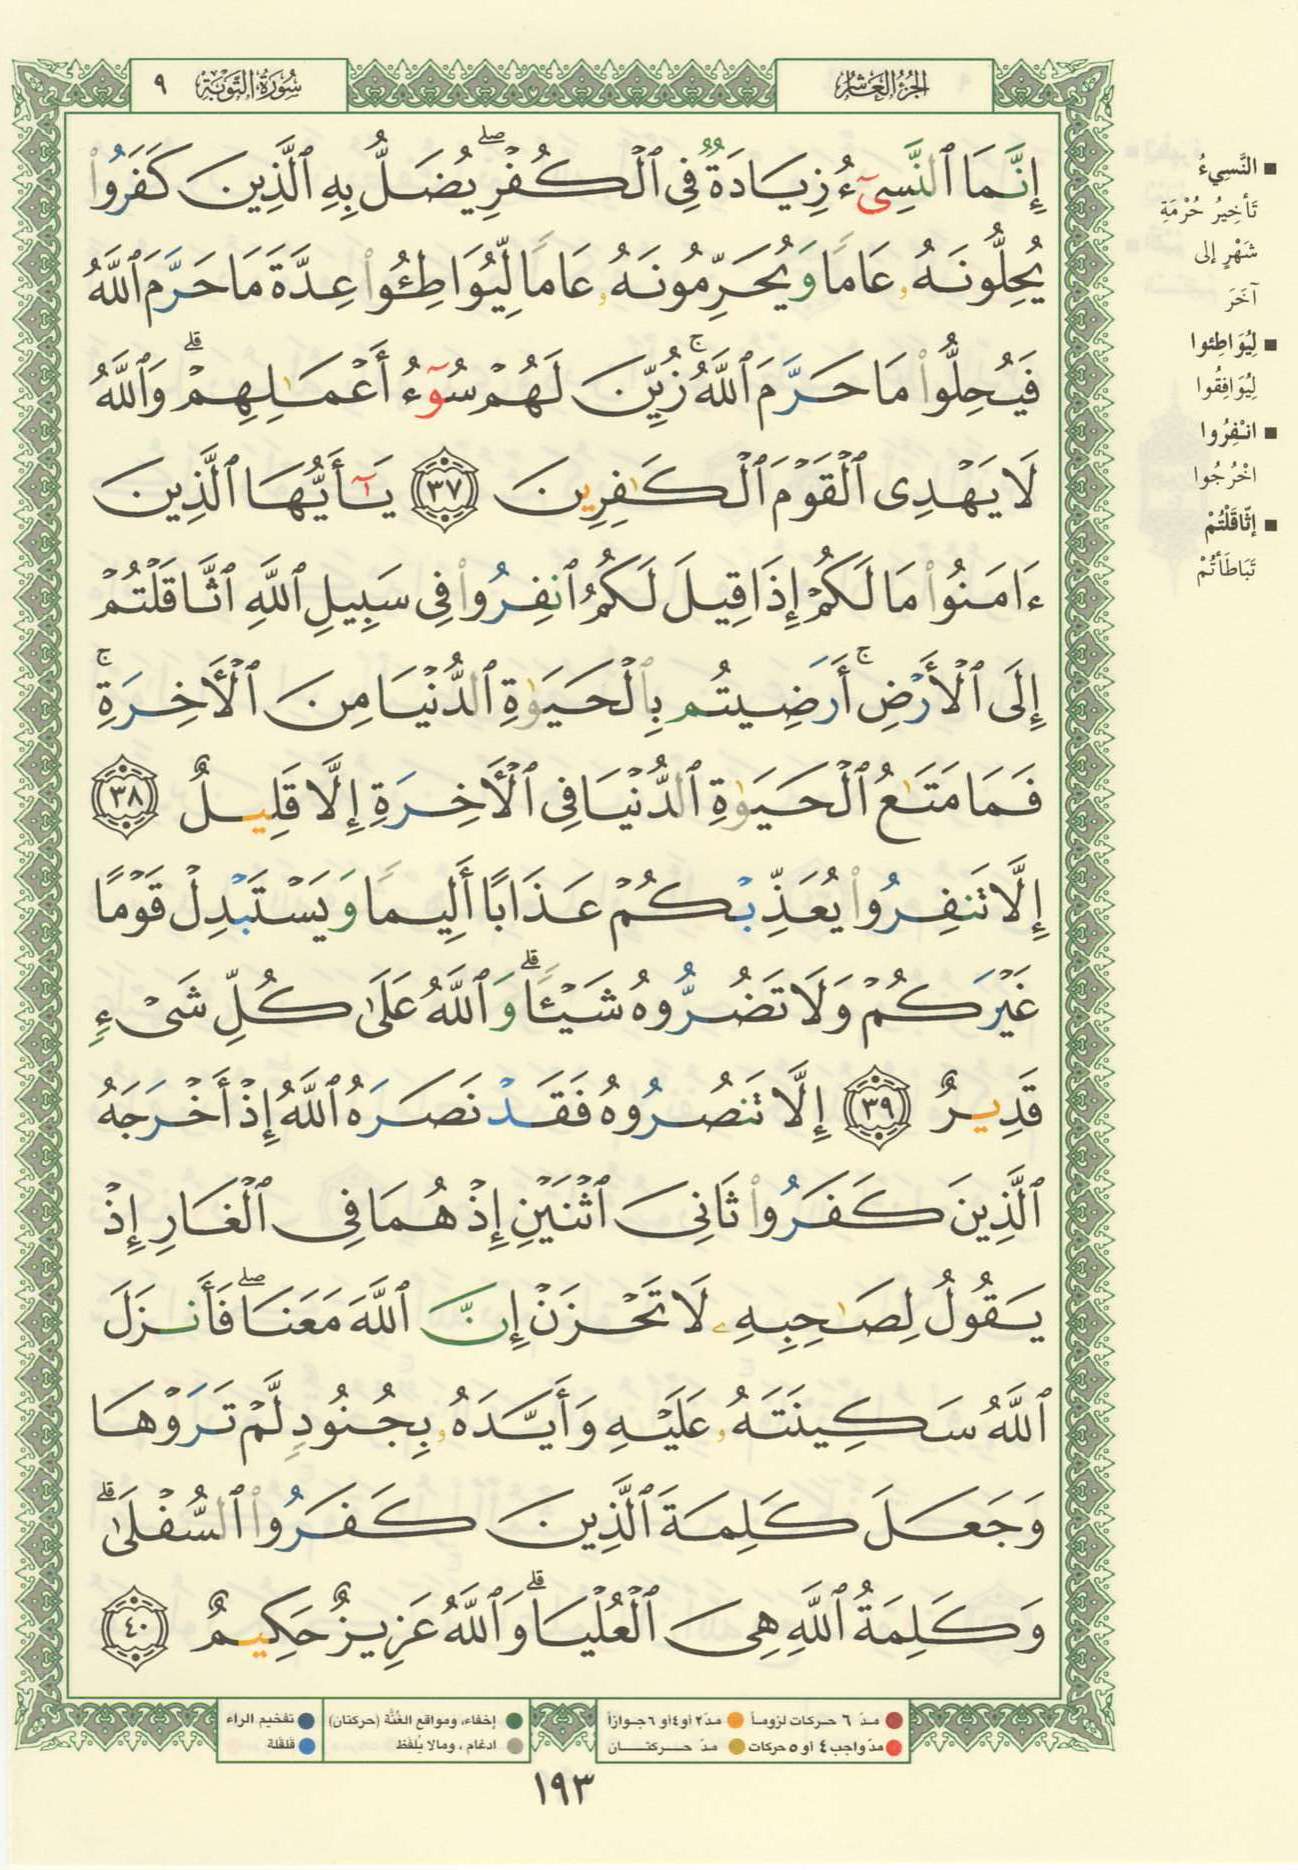 الجزء العاشر
سورة التوبة ٩
إِنَّمَا ٱلنَّسِىٓءُ زِيَادَةٌ فِى ٱلْكُفْرِ ۖ يُضَلُّ بِهِ ٱلَّذِينَ كَفَرُوا۟
يُحِلُّونَهُۥ عَامًا وَيُحَرِّمُونَهُۥ عَامًا لِّيُوَاطِـُٔوا۟ عِدَّةَ مَا حَرَّمَ ٱللَّهُ
فَيُحِلُّوا۟ مَا حَرَّمَ ٱللَّهُ ۚ زُيِّنَ لَهُمْ سُوٓءُ أَعْمَـٰلِهِمْ ۗ وَٱللَّهُ
لَا يَهْدِى ٱلْقَوْمَ ٱلْكَـٰفِرِينَ ٣٧ يَـٰٓأَيُّهَا ٱلَّذِينَ
ءَامَنُوا۟ مَا لَكُمْ إِذَا قِيلَ لَكُمُ ٱنفِرُوا۟ فِى سَبِيلِ ٱللَّهِ ٱثَّاقَلْتُمْ
إِلَى ٱلْأَرْضِ ۚ أَرَضِيتُم بِٱلْحَيَوٰةِ ٱلدُّنْيَا مِنَ ٱلْـَٔاخِرَةِ ۚ
فَمَا مَتَـٰعُ ٱلْحَيَوٰةِ ٱلدُّنْيَا فِى ٱلْـَٔاخِرَةِ إِلَّا قَلِيلٌ ٣٨
إِلَّا تَنفِرُوا۟ يُعَذِّبْكُمْ عَذَابًا أَلِيمًا وَيَسْتَبْدِلْ قَوْمًا
غَيْرَكُمْ وَلَا تَضُرُّوهُ شَيْـًٔا ۗ وَٱللَّهُ عَلَىٰ كُلِّ شَىْءٍ
قَدِيرٌ ٣٩ إِلَّا تَنصُرُوهُ فَقَدْ نَصَرَهُ ٱللَّهُ إِذْ أَخْرَجَهُ
ٱلَّذِينَ كَفَرُوا۟ ثَانِىَ ٱثْنَيْنِ إِذْ هُمَا فِى ٱلْغَارِ إِذْ
يَقُولُ لِصَـٰحِبِهِۦ لَا تَحْزَنْ إِنَّ ٱللَّهَ مَعَنَا ۖ فَأَنزَلَ
ٱللَّهُ سَكِينَتَهُۥ عَلَيْهِ وَأَيَّدَهُۥ بِجُنُودٍ لَّمْ تَرَوْهَا
وَجَعَلَ كَلِمَةَ ٱلَّذِينَ كَفَرُوا۟ ٱلسُّفْلَىٰ ۗ
وَكَلِمَةُ ٱللَّهِ هِىَ ٱلْعُلْيَا ۗ وَٱللَّهُ عَزِيزٌ حَكِيمٌ ٤٠
النَّسِيءُ
تَأخِيرُ حُرْمَةِ
شَهْرٍ إلى
آخَرَ
لِيُوَاطِئوا
لِيُوَافِقُوا
انْفِرُوا
اخْرُجُوا
اثَّاقَلْتُمْ
تَبَاطَأْتُمْ
مدّ ٦ حركات لزوماً مدّ٢ أو٤أو ٦جوازاً إخفاء، ومواقع الغُنَّة (حركتان) تفخيم الراء
مدّ واجب ٤ أو ٥ حركات مدّ حركتان ادغام ، ومالا يُلفَظ قلقلة
١٩٣